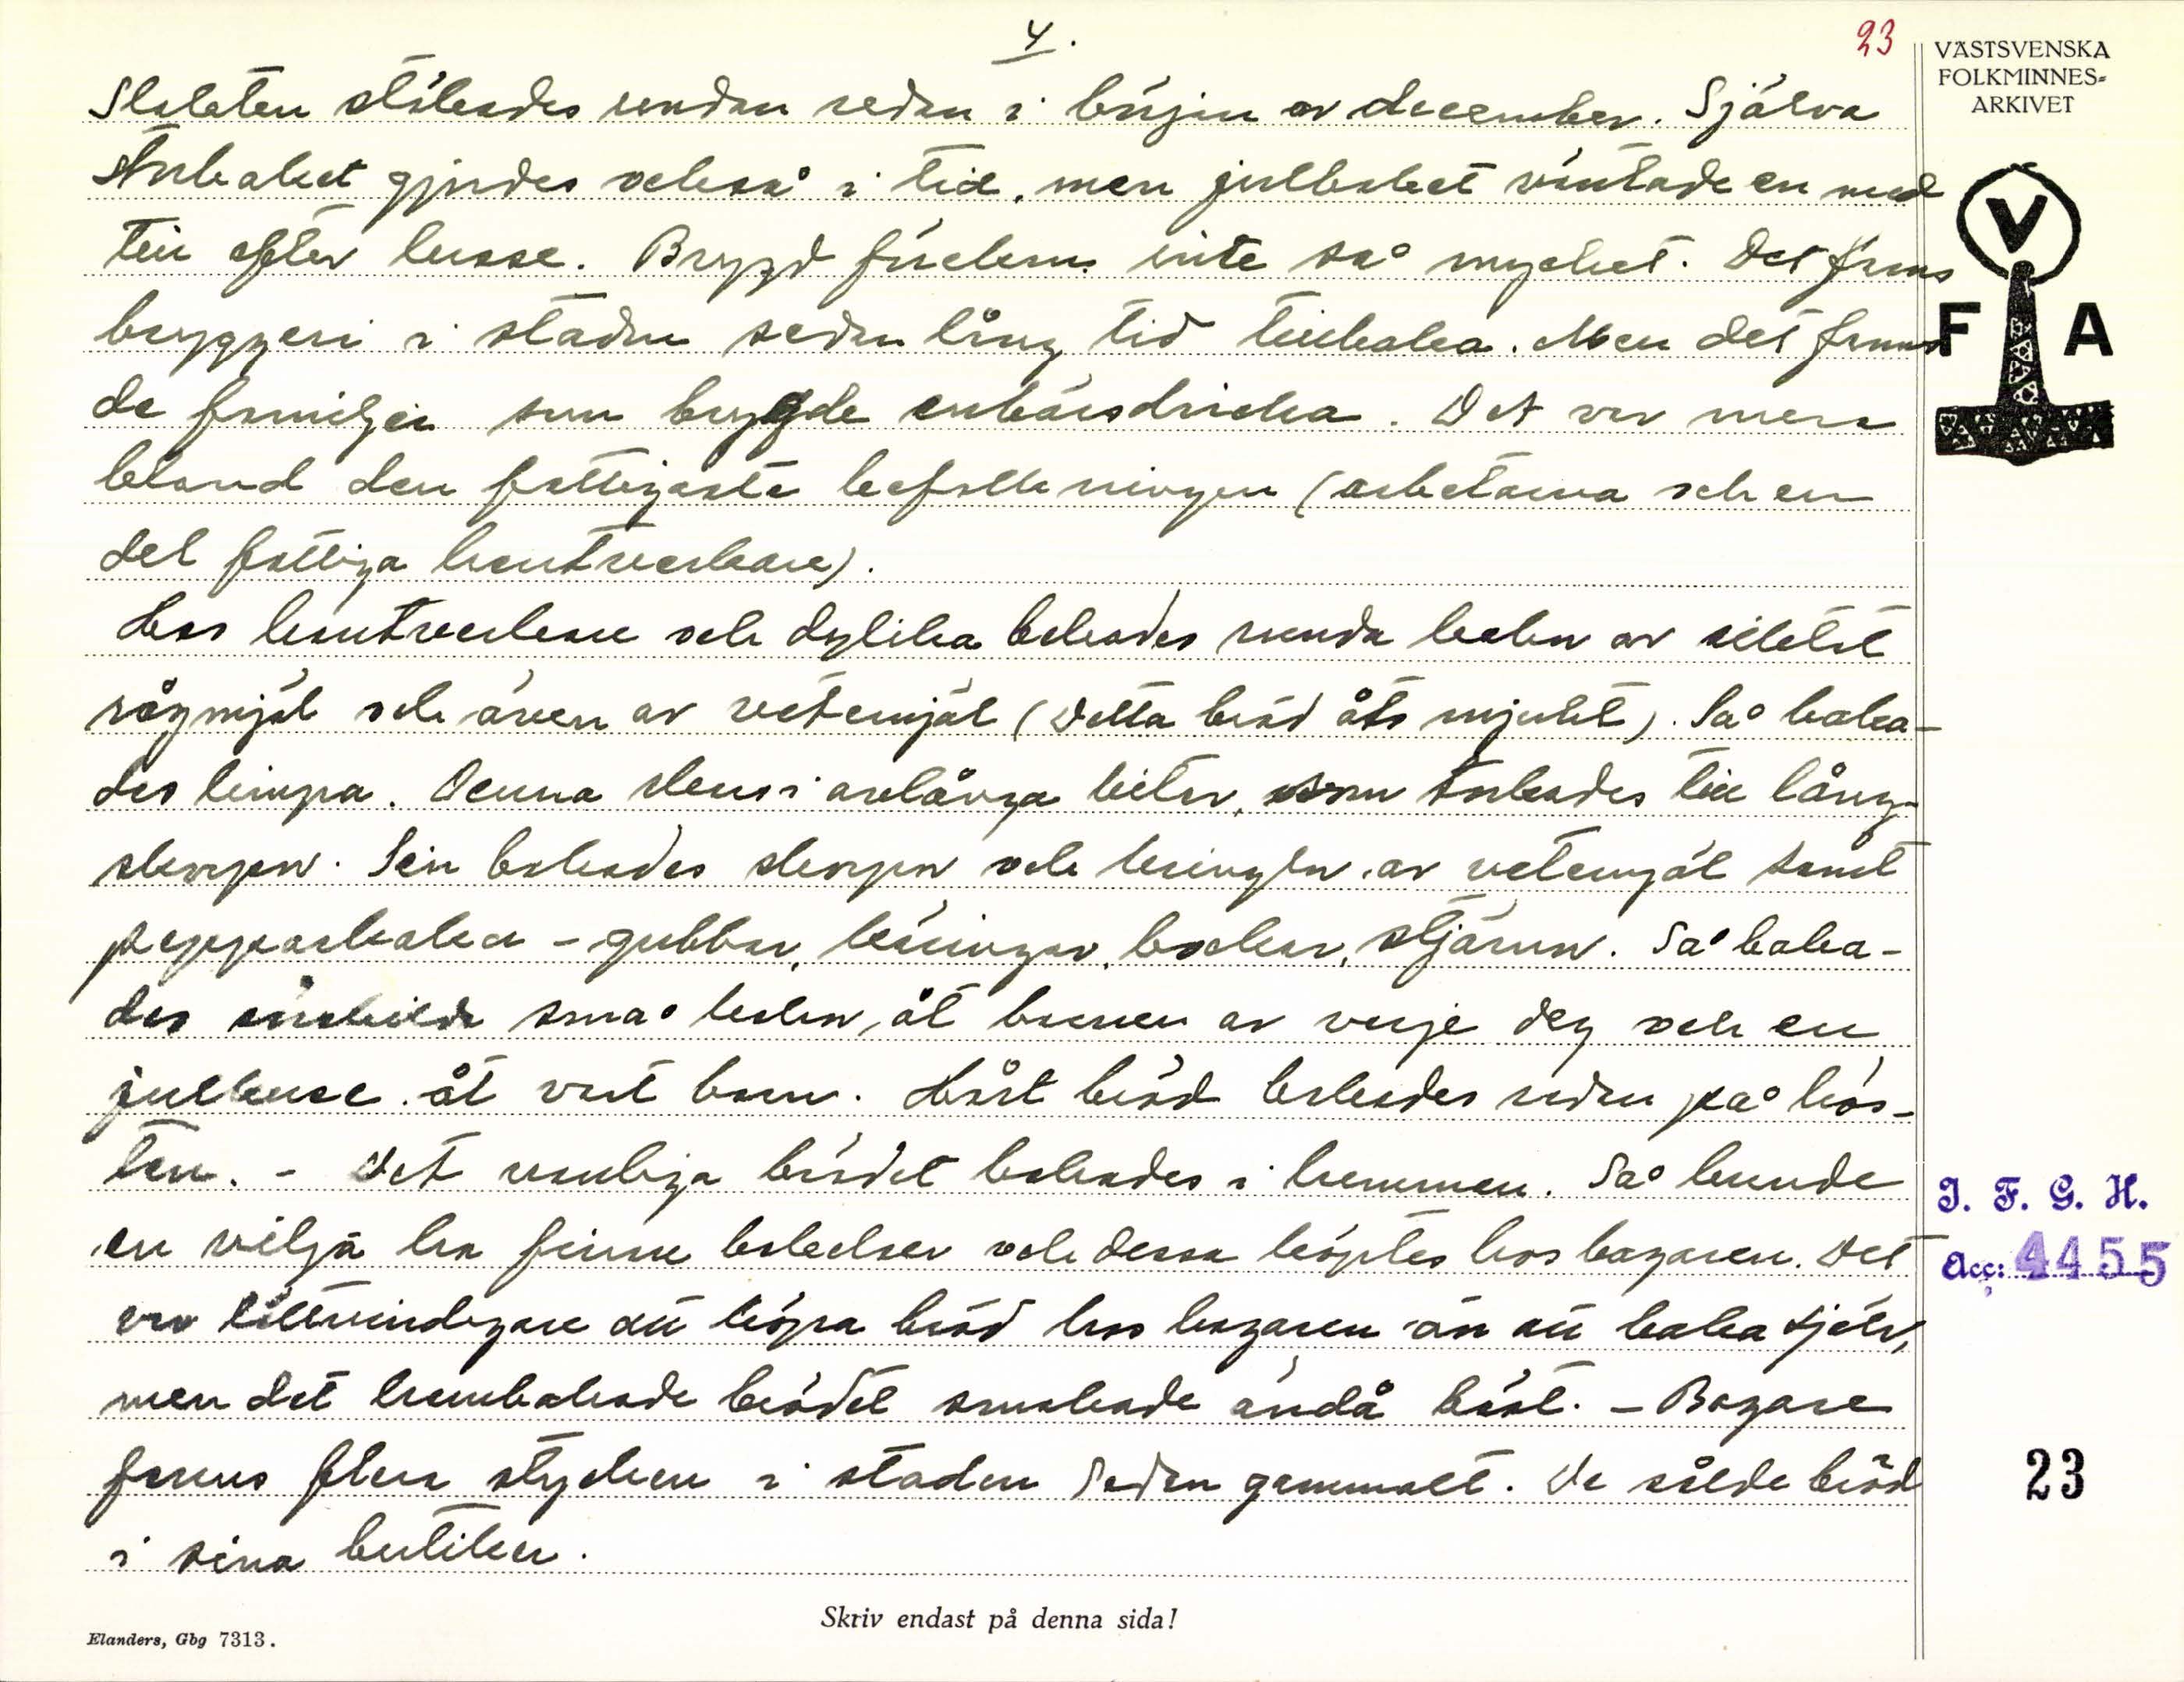 4.
23
VÄSTSVENSKA
FOLKMINNES-
ARKIVET
V
F A
Slakten stökades undan redan i början av december. Själva
storbaket gjordes också i tid, men julbaket väntade en med
till efter lusse. Brygd förekom inte så mycket. Det fanns
bryggeri i staden sedan lång tid tillbaka. Men det fanns
de familjer som brygde enbärsdricka. Det var mera
bland den fattigaste befolkningen (arbetarna och en
del fattiga hantverkare).
Hos hantverkare och dylika bakades runda kakor av siktat
rågmjöl och även av vetemjöl (detta bröd åts mjukt). Så baka-
des limpa. Denna skars i avlånga bitar, som torkades till lång-
skorpor. Sen bakades skorpor och kringlor av vetemjöl samt
pepparkakor - gubbar, käringar, bockar, stjärnor. Så baka-
des enskilda små kakor åt barnen av varje deg och en
julkuse åt vart barn. Hårt bröd bakades redan på hös-
ten. - Det vanliga brödet bakades i hemmen. Så kunde
en vilja ha finare bakelser och dessa köptes hos bagaren. Det
var lättvindigare att köpa bröd hos bagaren än att baka själv,
men det hembakade brödet smakade ändå bäst. - Bagare
fanns flera stycken i staden sedan gammalt. De sålde bröd
i sina butiker.
I. F. G. H.
Acc: 4455
23
Skriv endast på denna sida!
Elanders, Gbg 7313.